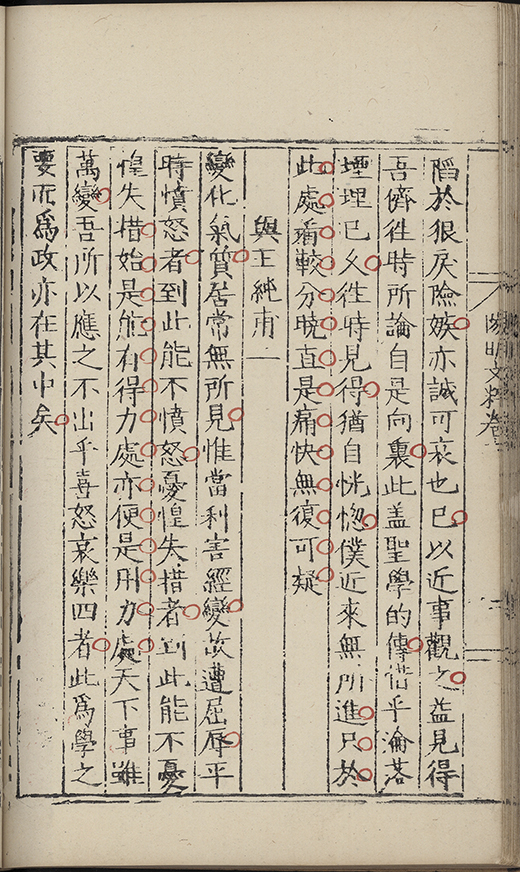 陷於狠戾險嫉亦誠可哀也已以近事觀之益見得
吾儕徃時所論自是向裏此盖聖學的傳惜乎淪落
堙埋已久徃時見得猶自恍惚僕近來無所進只於
此處看較分曉直是痛快無復可疑
與王純甫一
變化氣質居常無所見惟當利害經變故遭屈辱平
時憤怒者到此能不憤怒憂惶失措者到此能不憂
惶失措始是能有得力處亦便是用力處天下事雖
萬變吾所以應之不出乎喜怒哀樂四者此爲學之
要而爲政亦在其中矣
陽明文粹卷